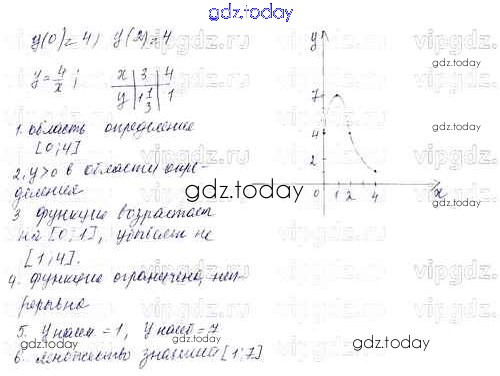 gdz.today
y(0)=4; y(2)=4
y=4/x; x 3 4
y 1 1/3 1
1. область определение
[0;4]
2. y>0 в области опре-
деления
3 функцие возрастает
на [0;1], убывает на
[1;4].
4. функцие ограничена, неп-
рерывна
5. y наим =1, y наиб=7
6. множество значений [1;7]
y
7
4
2
0 1 2 4 x
gdz.today
gdz.today
gdz.today
gdz.today
gdz.today
vipgdz.ru